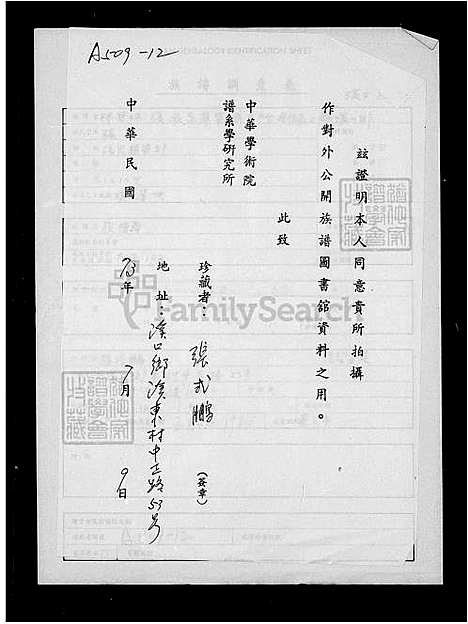 A509-12
茲證明本人同意貴所拍攝
作對外公開族譜圖書館資料之用。
此致
中華學術院
譜系學研究所
珍藏者：張武鵬（簽章）
地址：溪口鄉溪東村中正路53号
中華民國73年7月9日
FamilySearch